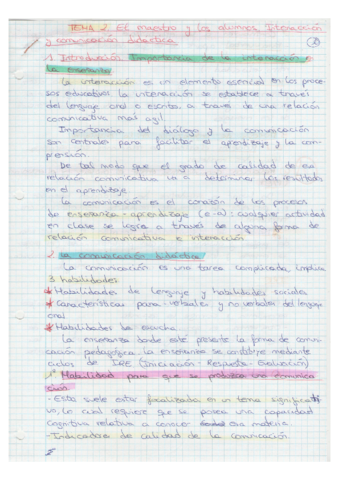 TEMA 2 El maestro y los alumnos. Interacción
y comunicación didáctica
1 Introducción Importancia de la interacción e
la enseñanza
La interacción es un elemento esencial en los proce-
sos educativos la interacción se establece a través
del lenguaje oral o escrito, a través de una relación
comunicativa mas agil.
Importancia del diálogo y la comunicación
son centrales para facilitar el aprendizaje y la com-
prensión.
De tal modo que el grado de calidad de esa
relación comunicativa va a determinar los resultados
en el aprendizaje.
La comunicación es el corazón de los procesos
de enseñanza-aprendizaje (e-a): cualquier actividad
en clase se logra a través de alguna forma de
relación comunicativa e interacción
2 La comunicación didáctica
La comunicación es una tarea complicada, implica
3 habilidades
* Habilidades de lenguaje y habilidades sociales
* Características para-verbales y no verbales del lenguaje
oral
* Habilidades de escucha
La enseñanza donde esté presente la forma de comuni-
cación pedagógica la enseñanza se construye mediante
ciclos de IRE (Iniciación - Respuesta - Evaluación)
1º Habilidad para que se produzca una comunica-
ción
- Esta suele estar focalizada en un tema significati-
vo, lo cual requiere que se posea una capacidad
cognitiva relativa a conocer esa materia.
- Indicadores de calidad de la comunicación.